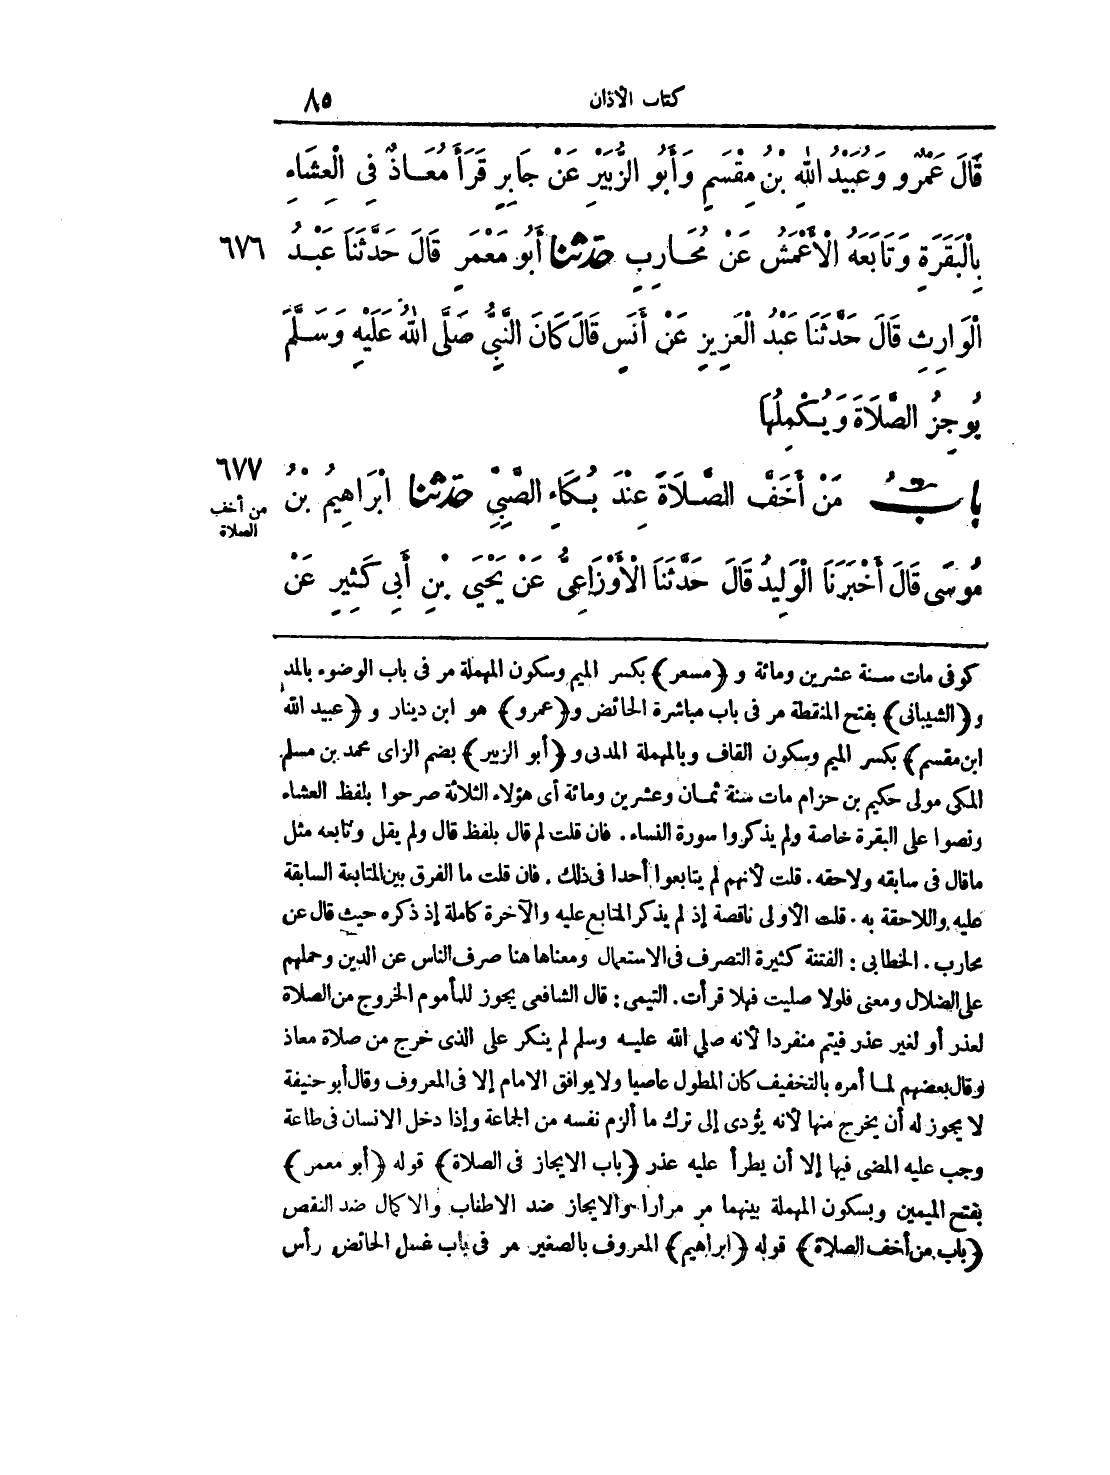 كتاب الأذان ٨٥
قَالَ عَمْرٌو وَعُبَيْدُ اللهِ بْنُ مِقْسَمٍ وَأَبُو الزُّبَيْرِ عَنْ جَابِرٍ قَرَأَ مُعَاذٌ فِى الْعِشَاءِ
بِالْبَقَرَةِ وَتَابَعَهُ الْأَعْمَشُ عَنْ مُحَارِبٍ حدثنا أَبُو مَعْمَرٍ قَالَ حَدَّثَنَا عَبْدُ ٦٧٦
الْوَارِثِ قَالَ حَدَّثَنَا عَبْدُ الْعَزِيزِ عَنْ أَنَسٍ قَالَ كَانَ النَّبِيُّ صَلَّى اللهُ عَلَيْهِ وَسَلَّمَ
يُوجِزُ الصَّلَاةَ وَيُكْمِلُهَا
بَابُ مَنْ أَخَفَّ الصَّلَاةَ عِنْدَ بُكَاءِ الصَّبِيِّ حدثنا ابْرَاهِيمُ بْنُ ٦٧٧
من أخف
الصلاة
مُوسَى قَالَ أَخْبَرَنَا الْوَلِيدُ قَالَ حَدَّثَنَا الْأَوْزَاعِىُّ عَنْ يَحْيَى بْنِ أَبِى كَثِيرٍ عَنْ
كوفى مات سنة عشرين ومائة و ﴿مسعر﴾ بكسر الميم وسكون المهملة مر فى باب الوضوء بالمد
و﴿الشيبانى﴾ بفتح المنقطة مر فى باب مباشرة الحائض و﴿عمرو﴾ هو ابن دينار و ﴿عبيد الله
ابن مقسم﴾ بكسر الميم وسكون القاف وبالمهملة المدنى و ﴿أبو الزبير﴾ بضم الزاى محمد بن مسلم
المكى مولى حكيم بن حزام مات سنة ثمان وعشرين ومائة أى هؤلاء الثلاثة صرحوا بلفظ العشاء
ونصوا على البقرة خاصة ولم يذكروا سورة النساء. فان قلت لم قال بلفظ قال ولم يقل وتابعه مثل
ماقال فى سابقه ولاحقه. قلت لأنهم لم يتابعوا أحدا فى ذلك. فان قلت ما الفرق بين المتابعة السابقة
عليه واللاحقة به. قلت الأولى ناقصة إذ لم يذكر المتابع عليه والآخرة كاملة إذ ذكره حيث قال عن
محارب. الخطابى: الفتنة كثيرة التصرف فى الاستعمال ومعناها هنا صرف الناس عن الدين وحملهم
على الضلال ومعنى فلولا صليت فهلا قرأت. التيمى: قال الشافعى يجوز للمأموم الخروج من الصلاة
لعذر أو لغير عذر فيتم منفردا لأنه صلي الله عليه وسلم لم ينكر على الذى خرج من صلاة معاذ
وقال بعضهم لما أمره بالتخفيف كان المطول عاصيا ولا يوافق الامام إلا فى المعروف وقال أبو حنيفة
لا يجوز له أن يخرج منها لأنه يؤدى إلى ترك ما ألزم نفسه من الجماعة وإذا دخل الانسان فى طاعة
وجب عليه المضى فيها إلا أن يطرأ عليه عذر ﴿باب الايجاز فى الصلاة﴾ قوله ﴿أبو معمر﴾
بفتح الميمين وبسكون المهملة بينهما مر مرارا والايجاز ضد الاطناب والاكمال ضد النقص
﴿باب من أخف الصلاة﴾ قوله ﴿ابراهيم﴾ المعروف بالصغير مر فى باب غسل الحائض رأس